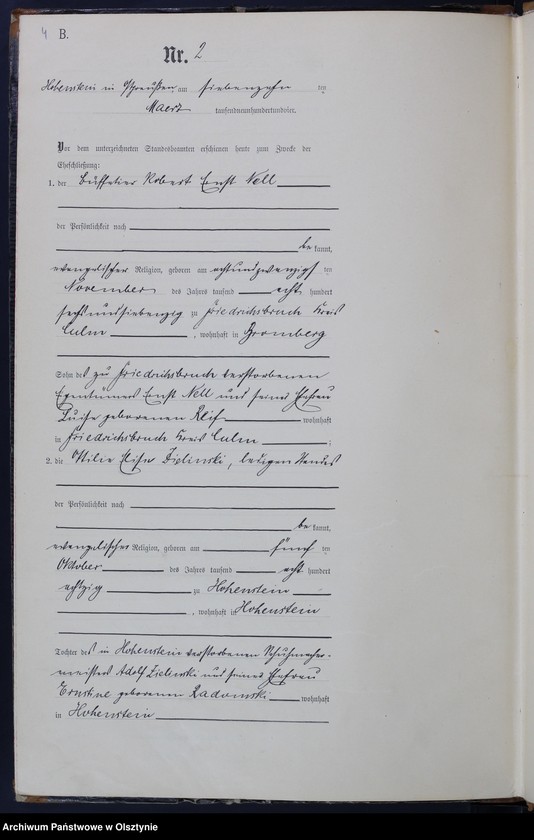 4 B.
Nr. 2
Hohenstein in Ostpreußen am siebenzehn ten
Maerz tausendneunhundertundvier.
Vor dem unterzeichneten Standesbeamten erschienen heute zum Zwecke der
Eheschließung:
1. der Büffetier Robert Ernst Nell
der Persönlichkeit nach
be kannt,
evangelischer Religion, geboren am achtundzwanzigs ten
November des Jahres tausend acht hundert
sechsundsiebenzig zu Friedrichsbruch Kreis
Culm , wohnhaft in Bromberg
Sohn des zu Friedrichsbruch verstorbenen
Eigentümers Ernst Nell und seiner Ehefrau
Luise geborenen wohnhaft
in Friedrichsbruch Kreis Culm ;
2. die Ottilie Elise Zielinski, ledigen Standes
der Persönlichkeit nach
be kannt,
evangelischer Religion, geboren am fünf ten
Oktober des Jahres tausend acht hundert
achtzig zu Hohenstein
, wohnhaft in Hohenstein
Tochter des in Hohenstein verstorbenen Schuhmacher-
meisters Adolf Zielinski und seiner Ehefrau
Ernstine geborenen Radomski wohnhaft
in Hohenstein
Archiwum Państwowe w Olsztynie